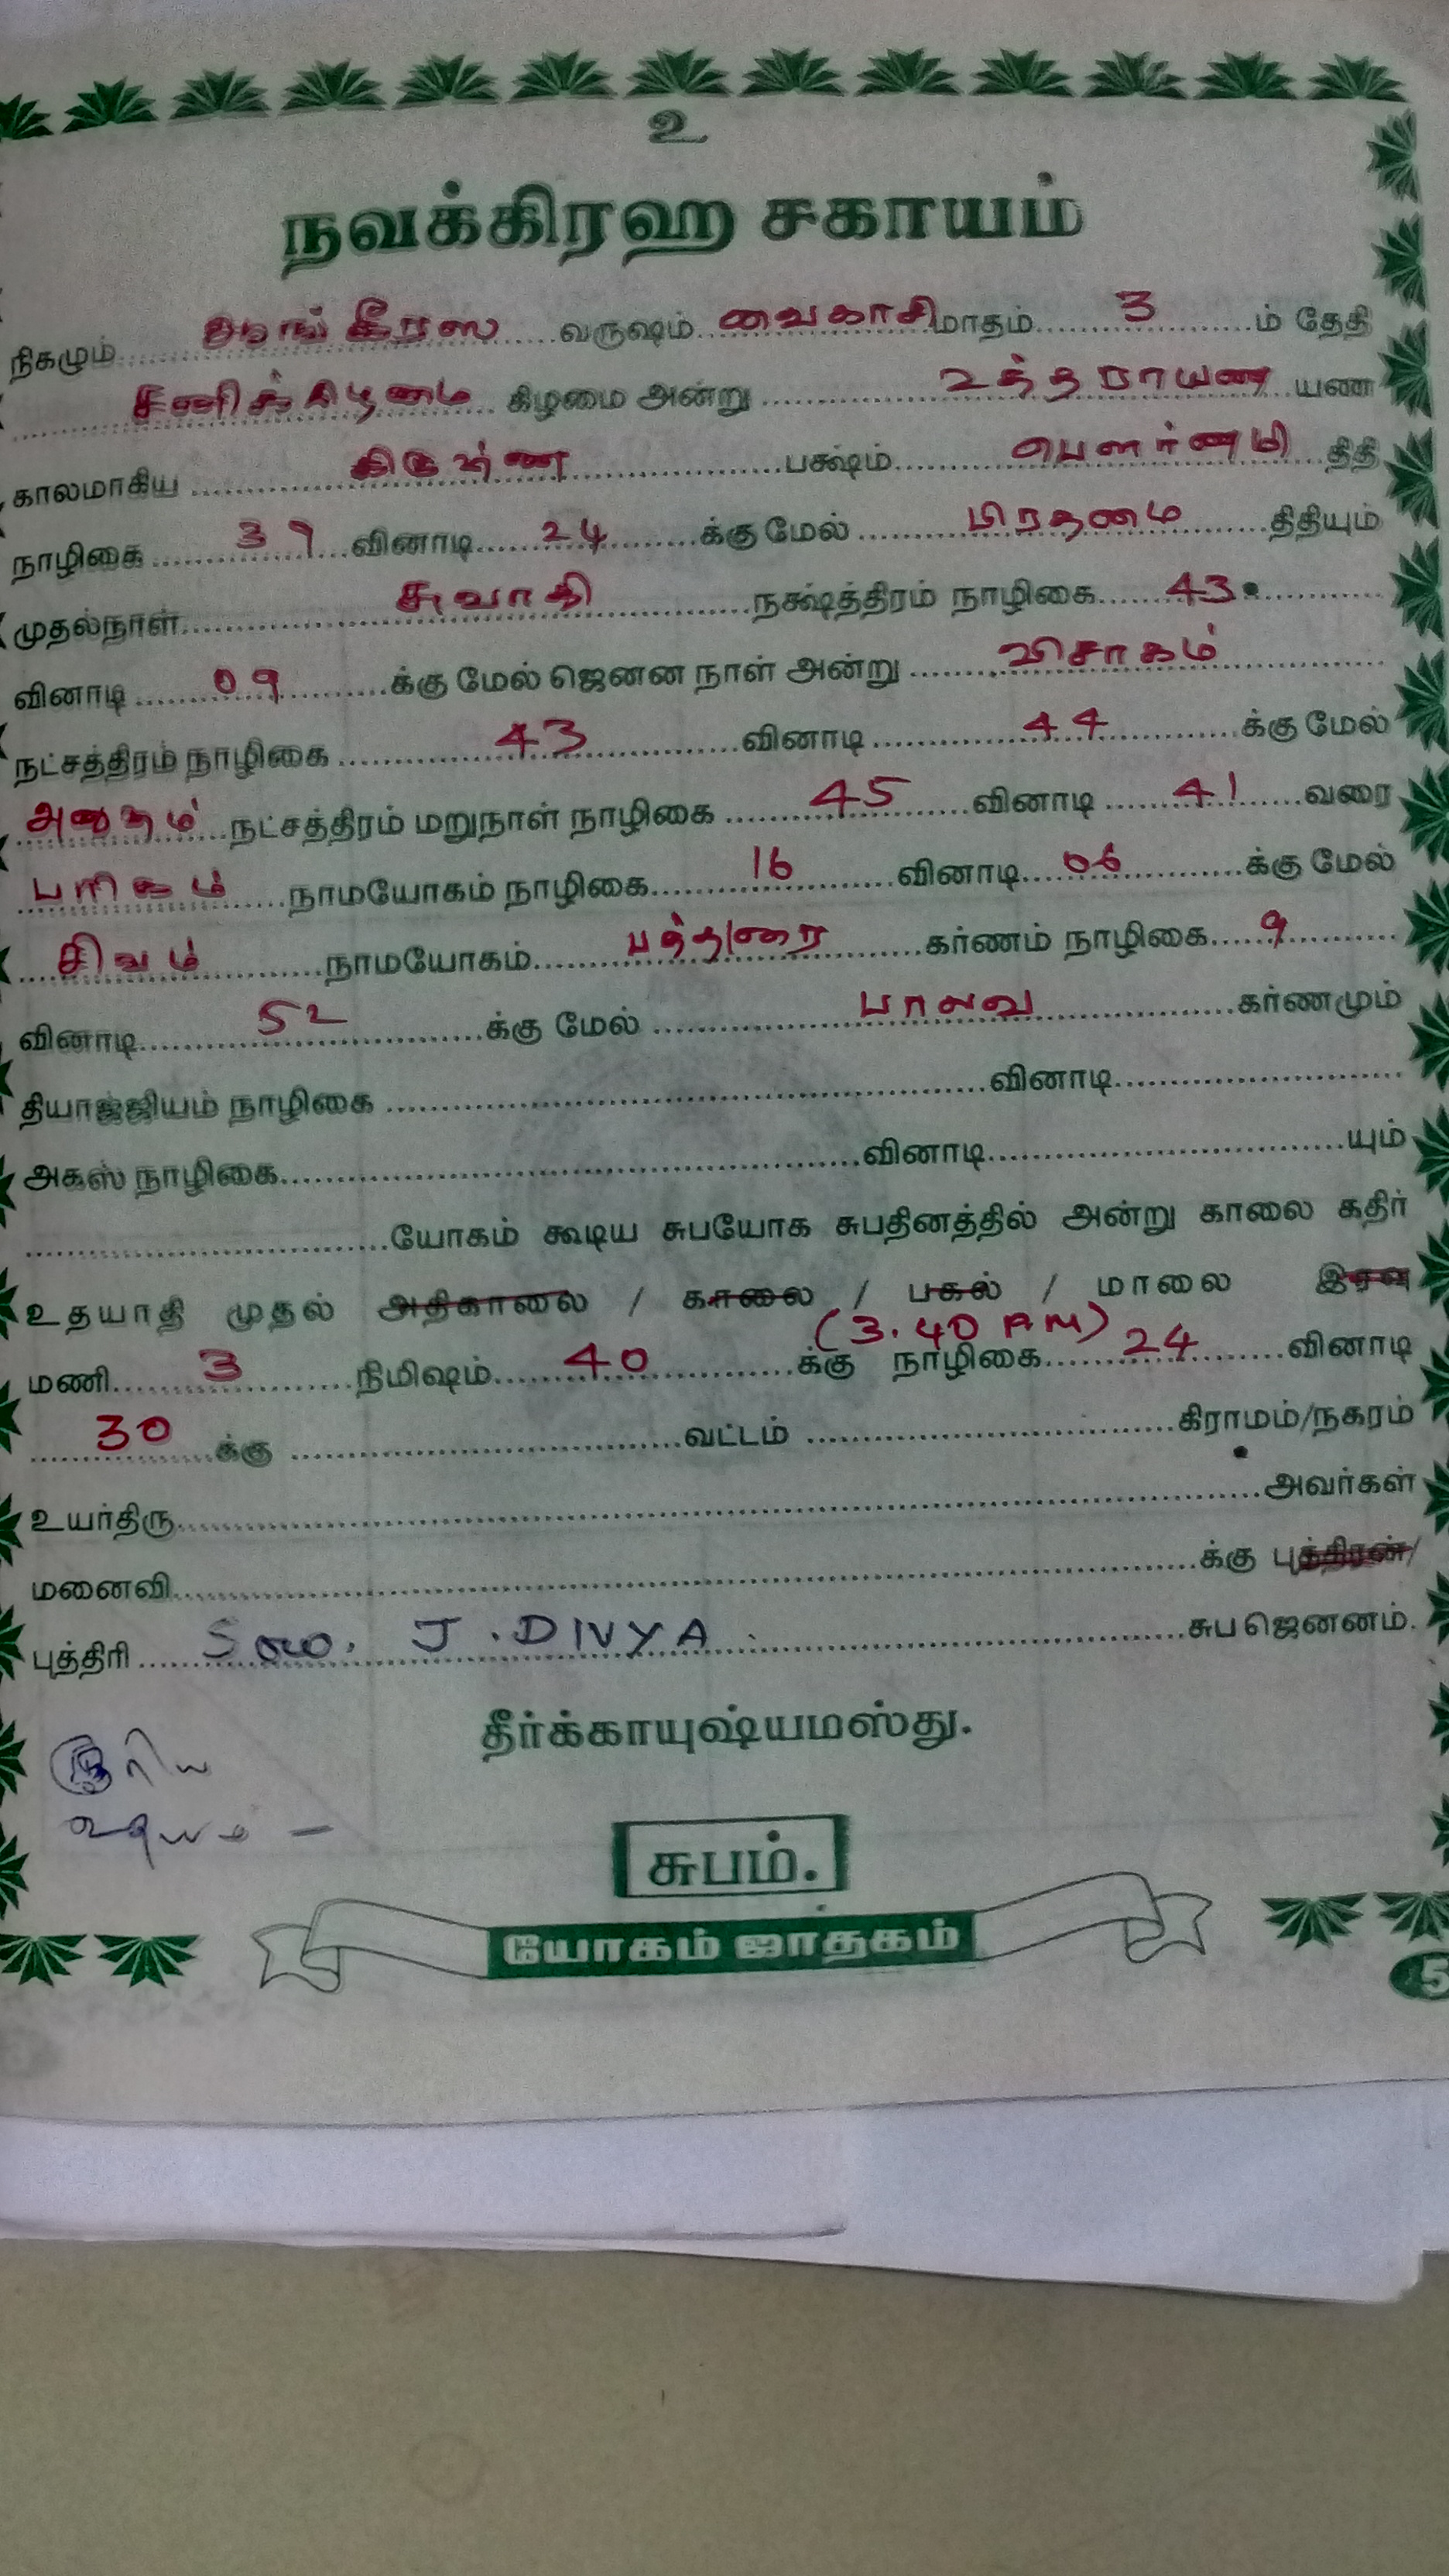 உ
நவக்கிரஹ சகாயம்
நிகழும் ஆங்கீரஸ வருஷம் வைகாசி மாதம் 3 ம் தேதி
சனிக்கிழமை கிழமை அன்று உத்தராயண யண
காலமாகிய கிருஷ்ண பக்ஷம் பௌர்ணமி திதி
நாழிகை 39 வினாடி 24 க்கு மேல் பிரதமை திதியும்
முதல்நாள் சுவாதி நக்ஷத்திரம் நாழிகை 43
வினாடி 09 க்கு மேல் ஜெனன நாள் அன்று விசாகம்
நட்சத்திரம் நாழிகை 43 வினாடி 44 க்கு மேல்
அனுசம் நட்சத்திரம் மறுநாள் நாழிகை 45 வினாடி 41 வரை
பரிகம் நாமயோகம் நாழிகை 16 வினாடி 06 க்கு மேல்
சிவம் நாமயோகம் பத்திரை கர்ணம் நாழிகை 9
வினாடி 52 க்கு மேல் பாலவ கர்ணமும்
தியாஜ்ஜியம் நாழிகை வினாடி
அகஸ் நாழிகை வினாடி யும்
யோகம் கூடிய சுபயோக சுபதினத்தில் அன்று காலை கதிர்
உதயாதி முதல் அதிகாலை / காலை / பகல் / மாலை இரவு
(3.40 AM)
மணி 3 நிமிஷம் 40 க்கு நாழிகை 24 வினாடி
30 க்கு வட்டம் கிராமம்/நகரம்
உயர்திரு அவர்கள்
மனைவி க்கு புத்திரன்/
புத்திரி J. DIVYA சுப ஜெனனம்.
தீர்க்காயுஷ்யமஸ்து.
சூரிய
உதயம் -
சுபம்.
யோகம் ஜாதகம்
5